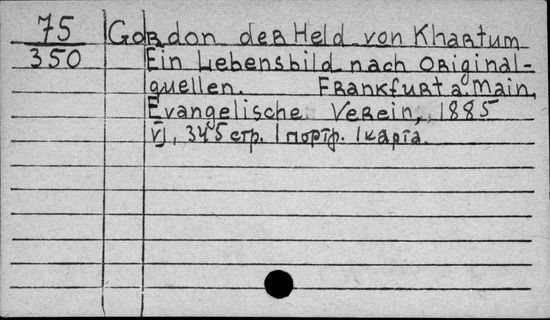 75 Gordon der Held von Khartum
350 Ein Lebensbild nach Original-
quellen. Frankfurt a. Main,
Evangelische Verein, 1885
VI, 345 стр. 1 портр. 1 карта.